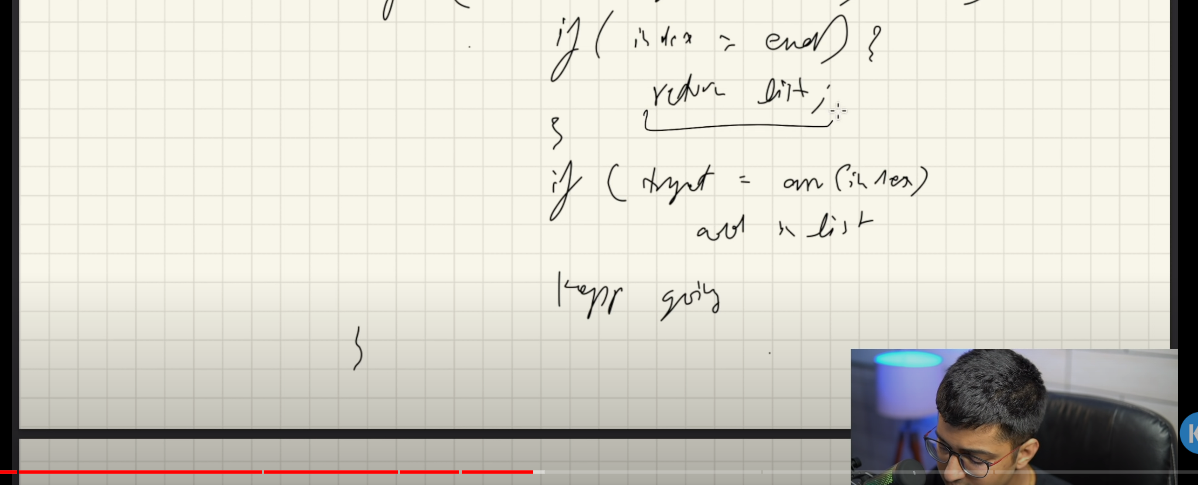 if ( index = end ) {
return list ;
}
if ( target = arr (index)
add in list
Keep going
}
K